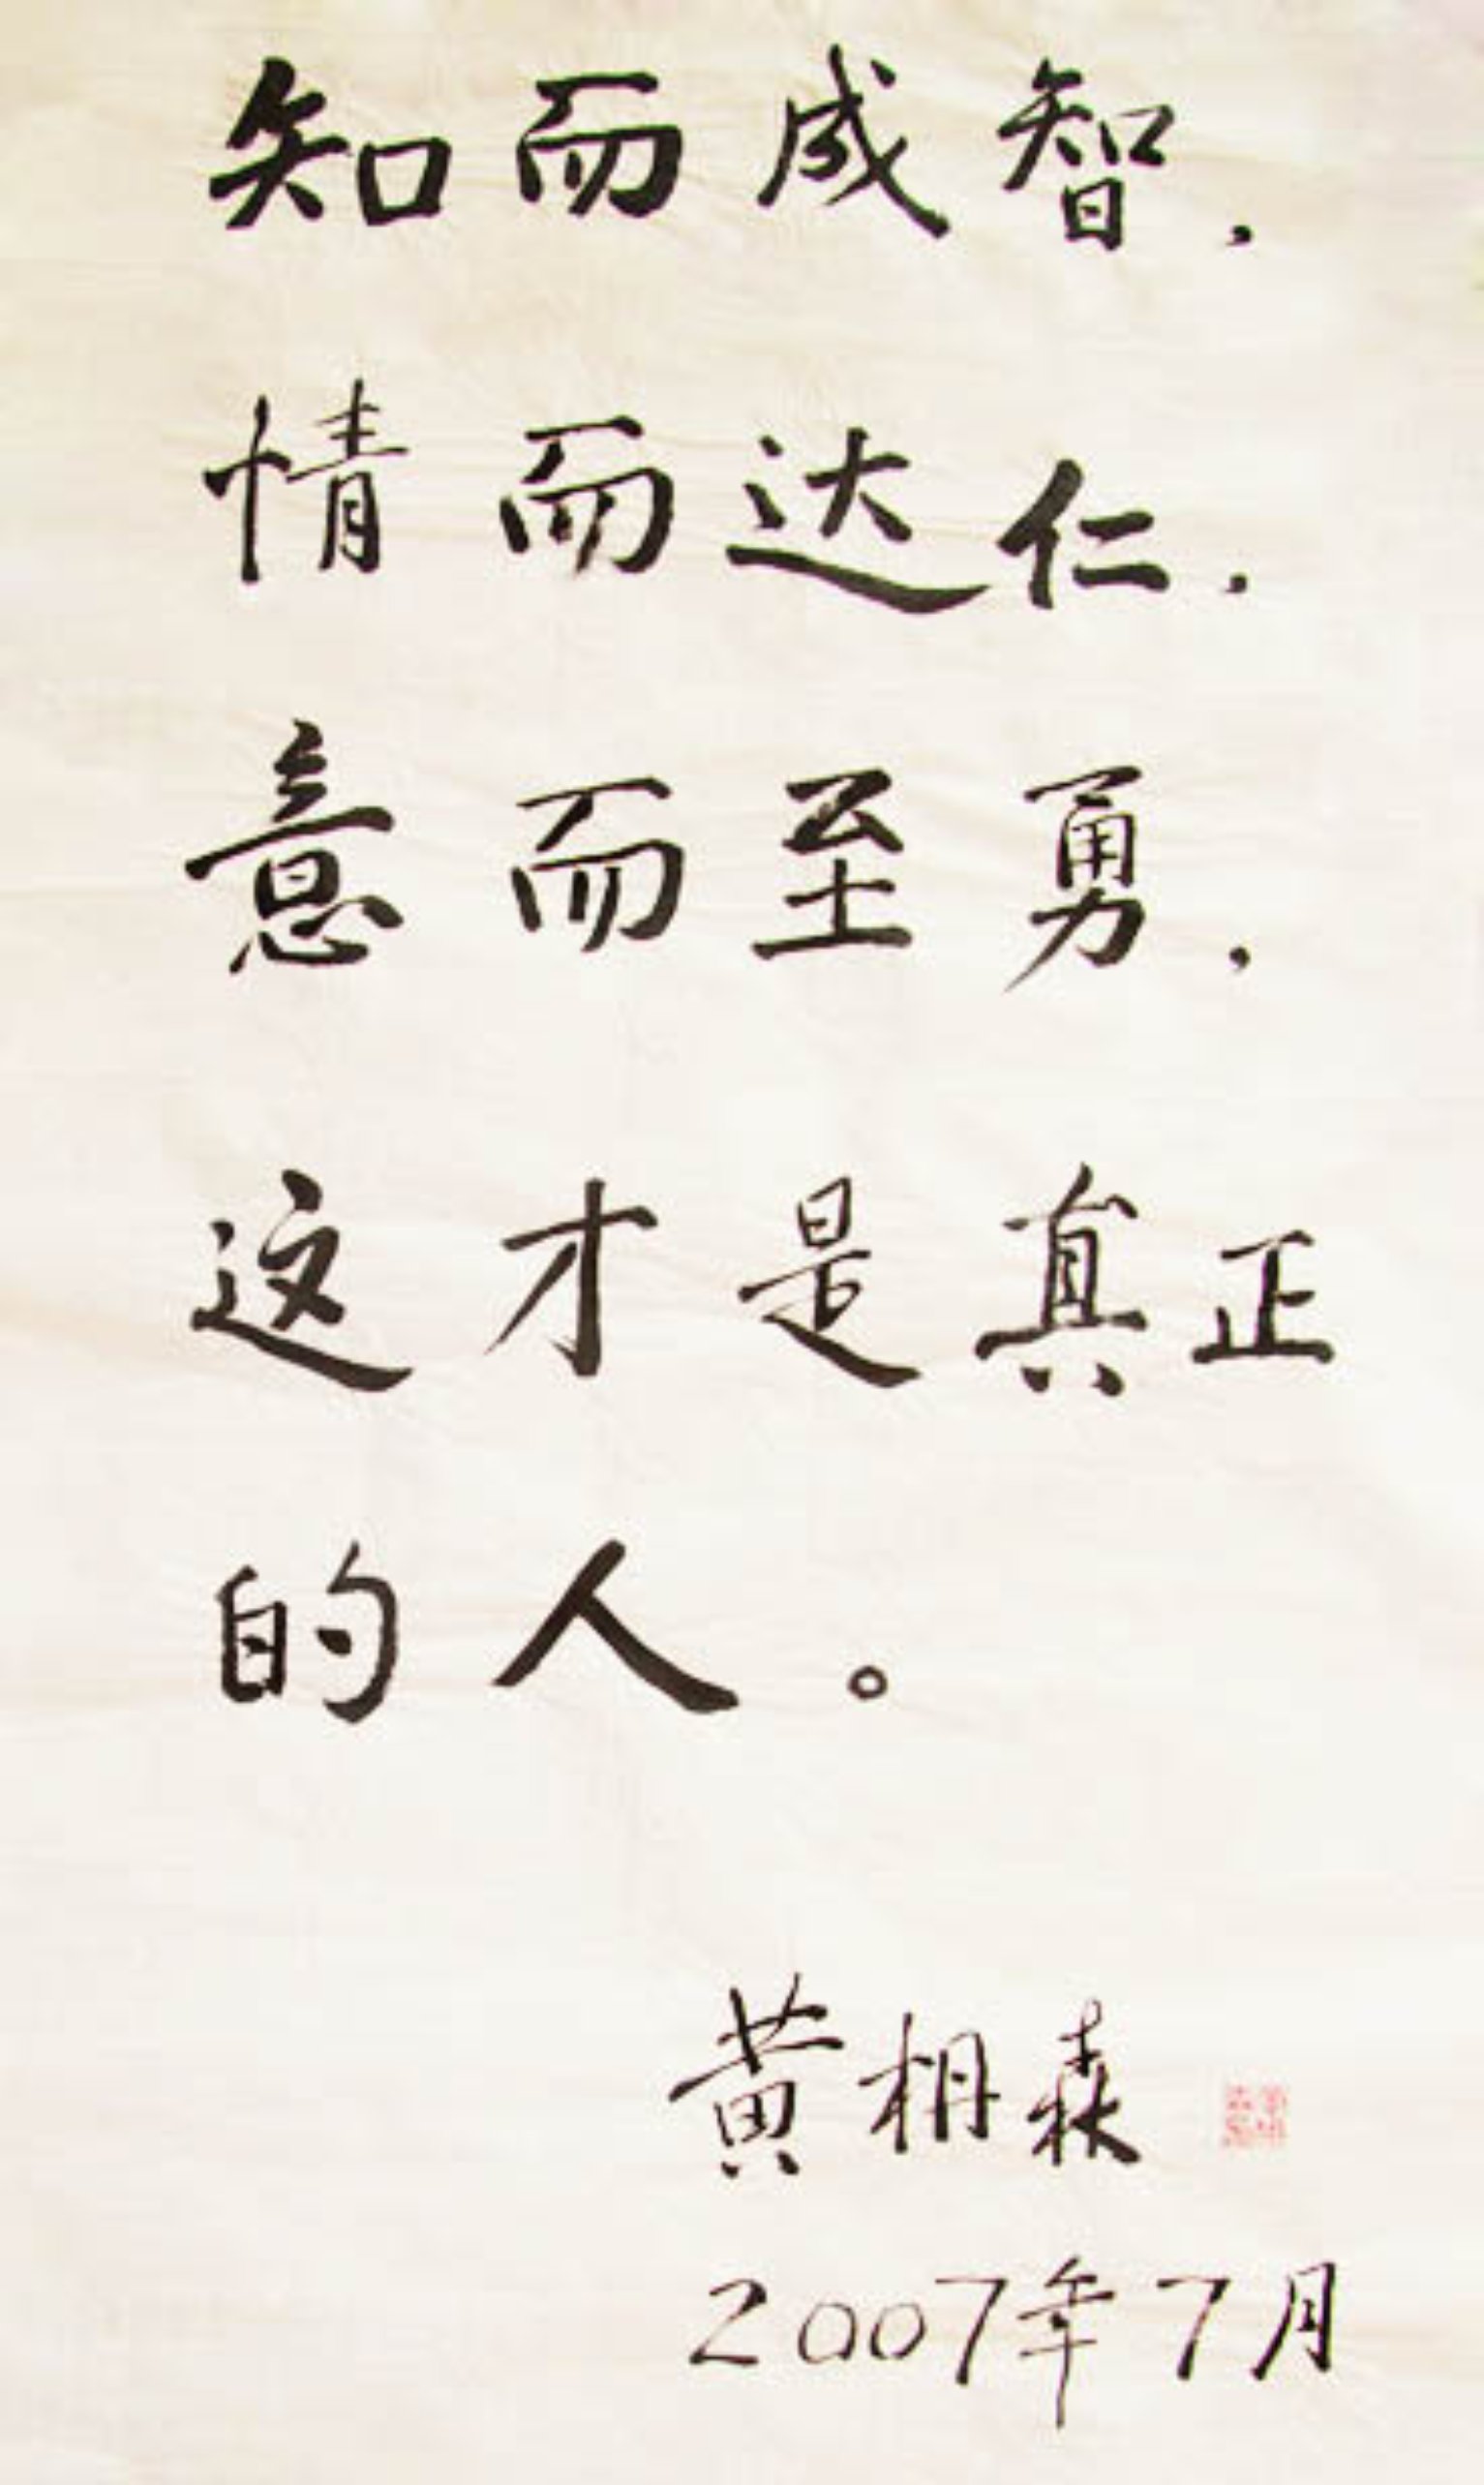 知而成智，
情而达仁，
意而至勇，
这才是真正
的人。
黄枏森
2007年7月